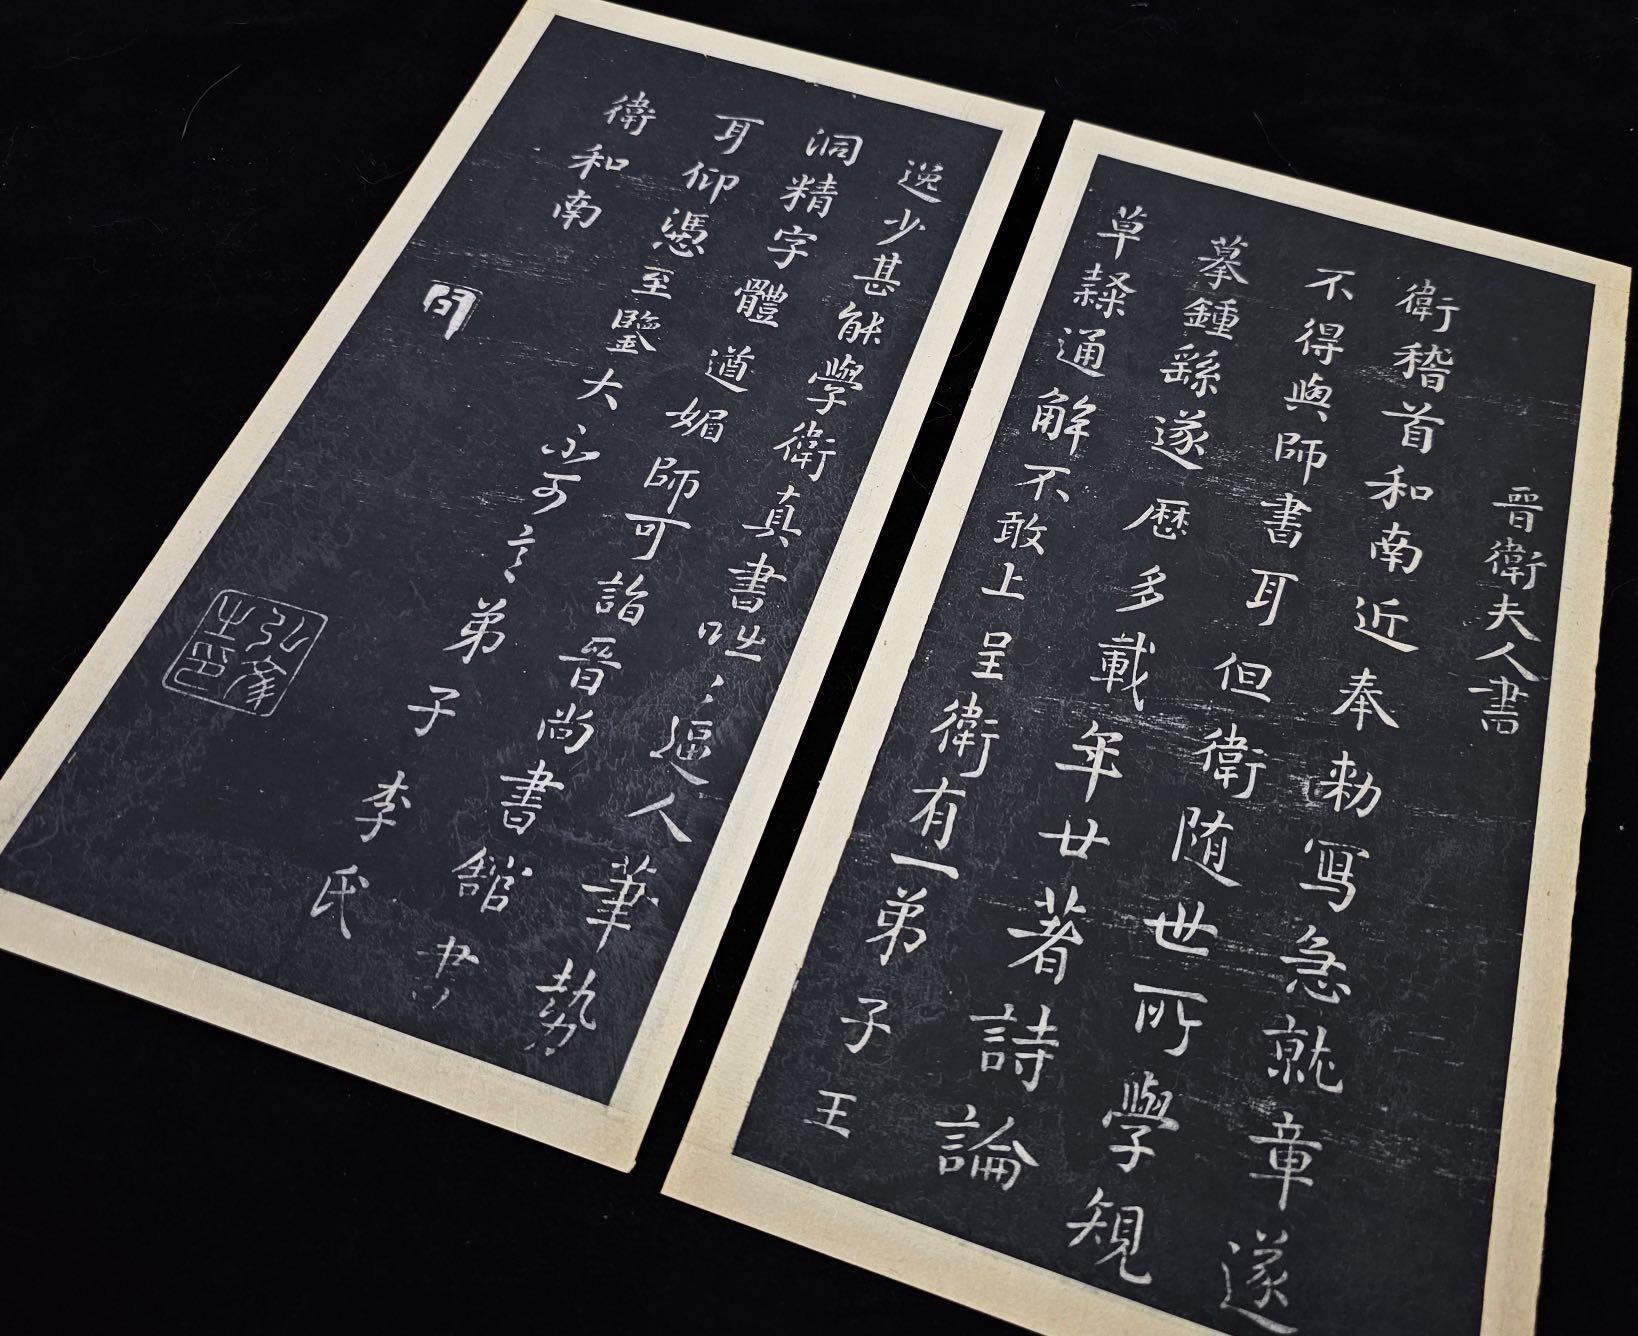 晉衛夫人書
衛稽首和南近奉勑冩急就章遂
不得與師書耳但衛随世所學規
摹鍾繇遂歴多載年廿著詩論
草隸通解不敢上呈衛有一弟子王
逸少甚能學衛真書咄〻逼人筆勢
洞精字體遒媚師可詣晉尚書館書
耳仰憑至鑒大不可言弟子李氏
衛和南